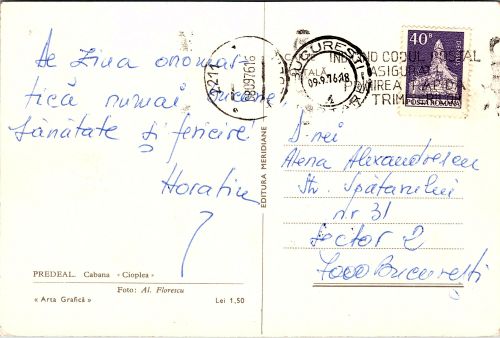 De ziua onomas-
tică numai bucurie,
sănătate și fericire.
Horațiu
PREDEAL. Cabana «Cioplea»
Foto: Al. Florescu
« Arta Grafică »
Lei 1,50
EDITURA MERIDIANE
72211
09.9.76 16
BUCUREȘTI
09.9.76.18
INDICIND CODUL POȘTAL
ASIGURAȚI
PRIMIREA RAPIDĂ
40 B
DENSUȘ
POSTA ROMANA
D-nei
Alena Alexandrescu
Str. Spătarului
nr 31
Sector 2
7000 București